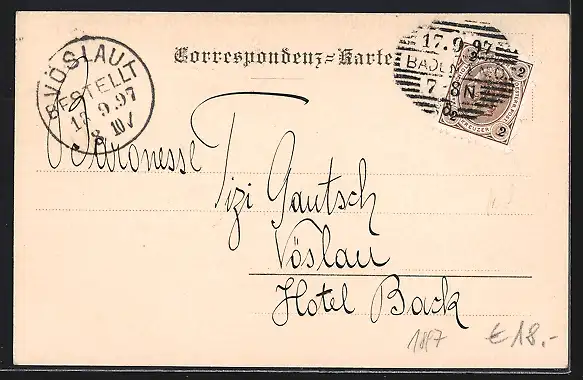 Correspondenz-Karte
VÖSLAU
BESTELLT
17.9.97
8
17.9.97
BADEN
7-8 N
2
2
2
KREUZER
Baronesse Tizi Gautsch
Vöslau
Hotel Back
1897
€ 18.-